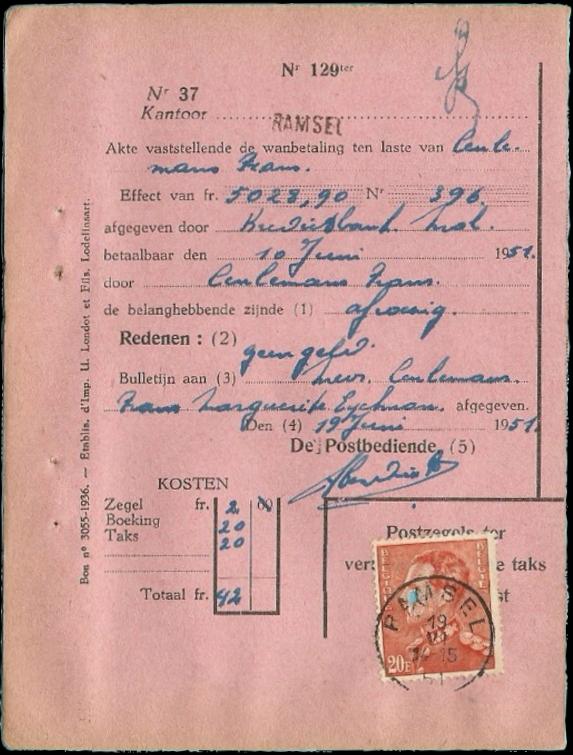 Nr 129ter
Nr 37
Kantoor RAMSEL
Akte vaststellende de wanbetaling ten laste van Ceule-
mans Frans.
Effect van fr. 5028,90 Nr 396.
afgegeven door Kredietbank
betaalbaar den 10 Juni 1951.
door Ceulemans Frans.
de belanghebbende zijnde (1) afwezig.
Redenen : (2)
geen geld.
Bulletijn aan (3) mevr. Ceulemans.
Frans Marguerite afgegeven.
Den (4) 19 Juni 1951.
De Postbediende (5)
KOSTEN
Zegel fr. 2
Boeking 20
Taks 20
Totaal fr. 42
Postzegels ter
taks
BELGIQUE BELGIE
20F
RAMSEL
19
14-15
51
Bon nº 3055-1936. — Etablis. d'Imp. U. Londot et Fils, Lodelinsart.